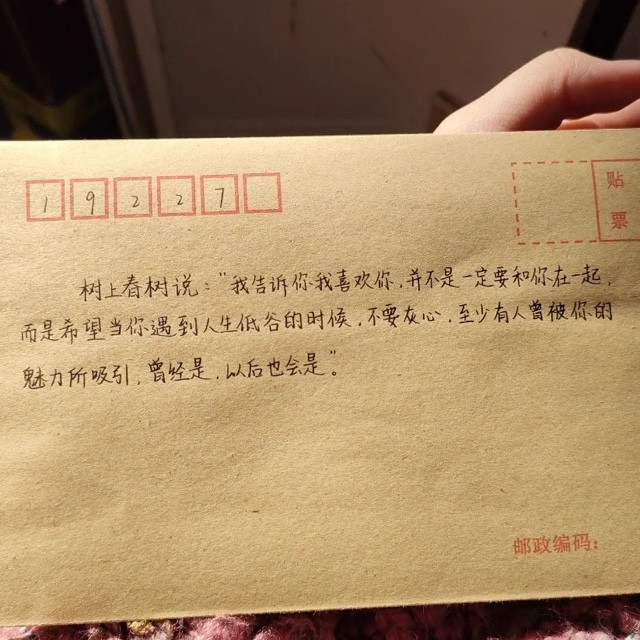 19227
贴
票
树上春树说：“我告诉你我喜欢你，并不是一定要和你在一起，
而是希望当你遇到人生低谷的时候，不要灰心，至少有人曾被你的
魅力所吸引，曾经是，以后也会是”。
邮政编码：